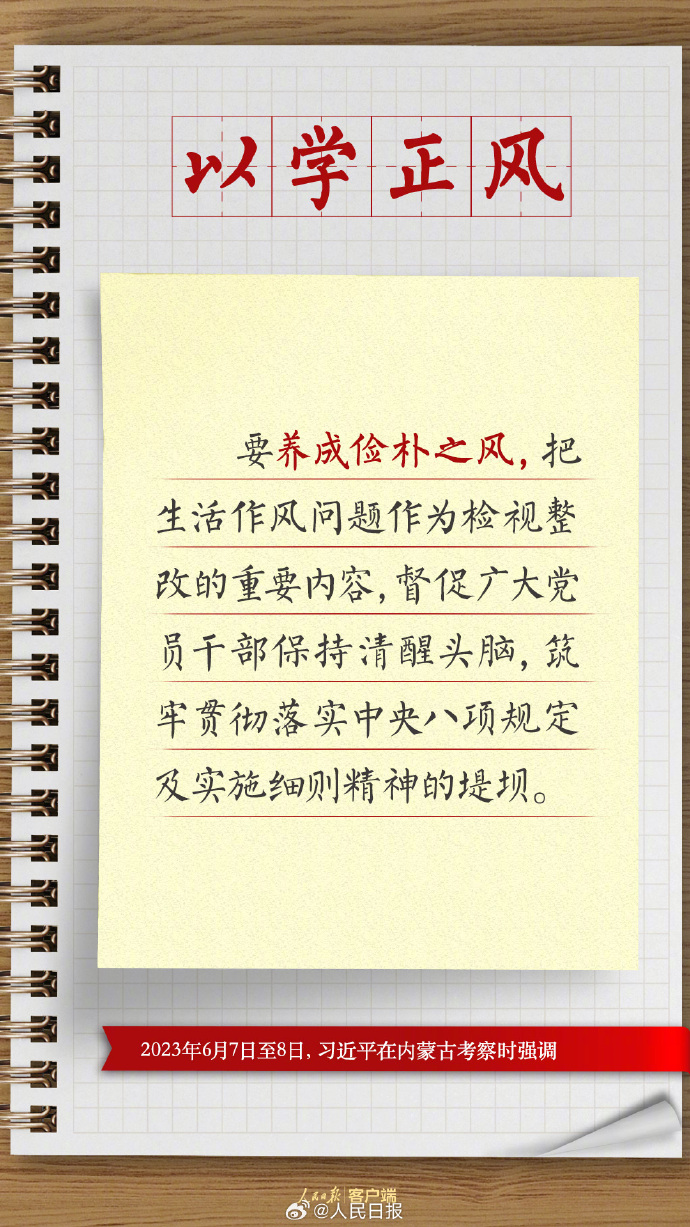 以学正风
要养成俭朴之风，把
生活作风问题作为检视整
改的重要内容，督促广大党
员干部保持清醒头脑，筑
牢贯彻落实中央八项规定
及实施细则精神的堤坝。
2023年6月7日至8日，习近平在内蒙古考察时强调
人民日报 客户端
@人民日报